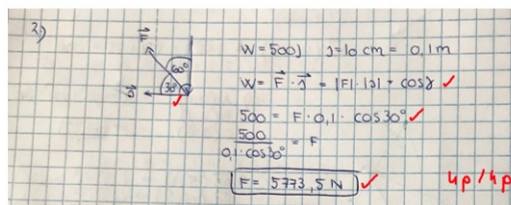 2.)
F
60°
30°
s
W = 500J s = 10 cm = 0,1 m
W = F · s = |F| · |s| · cosγ
500 = F · 0,1 · cos30°
500
0,1 · cos30°
= F
F = 5773,5 N
4p/4p